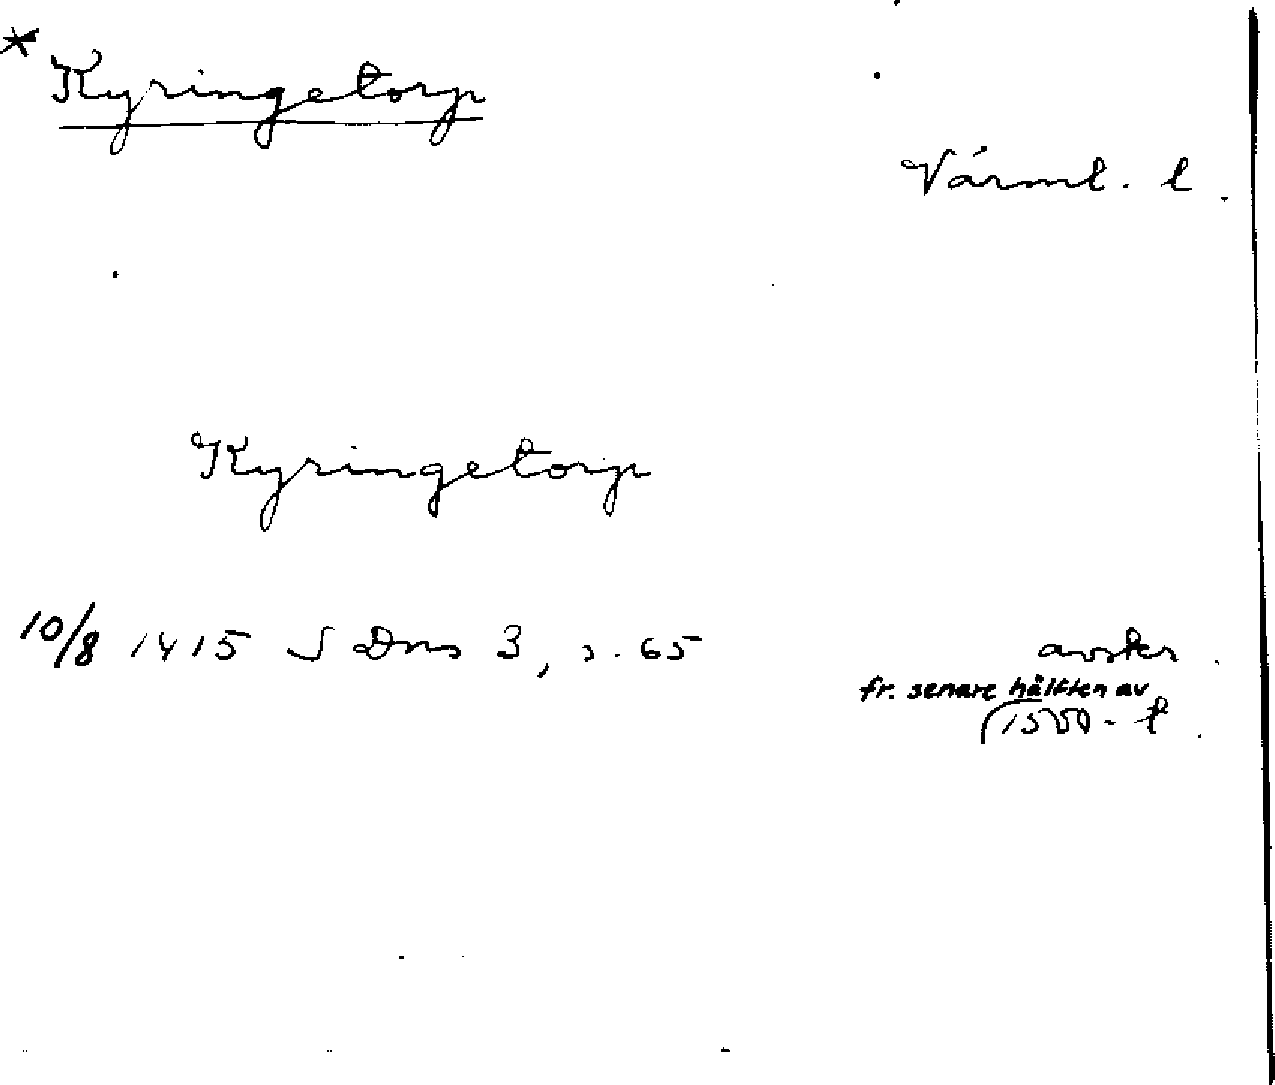 * Kyringetorp
Värml. l.
Kyringetorp
10/8 1415 S Dns 3, s. 65
avskr.
fr. senare hälften av
1500-t.